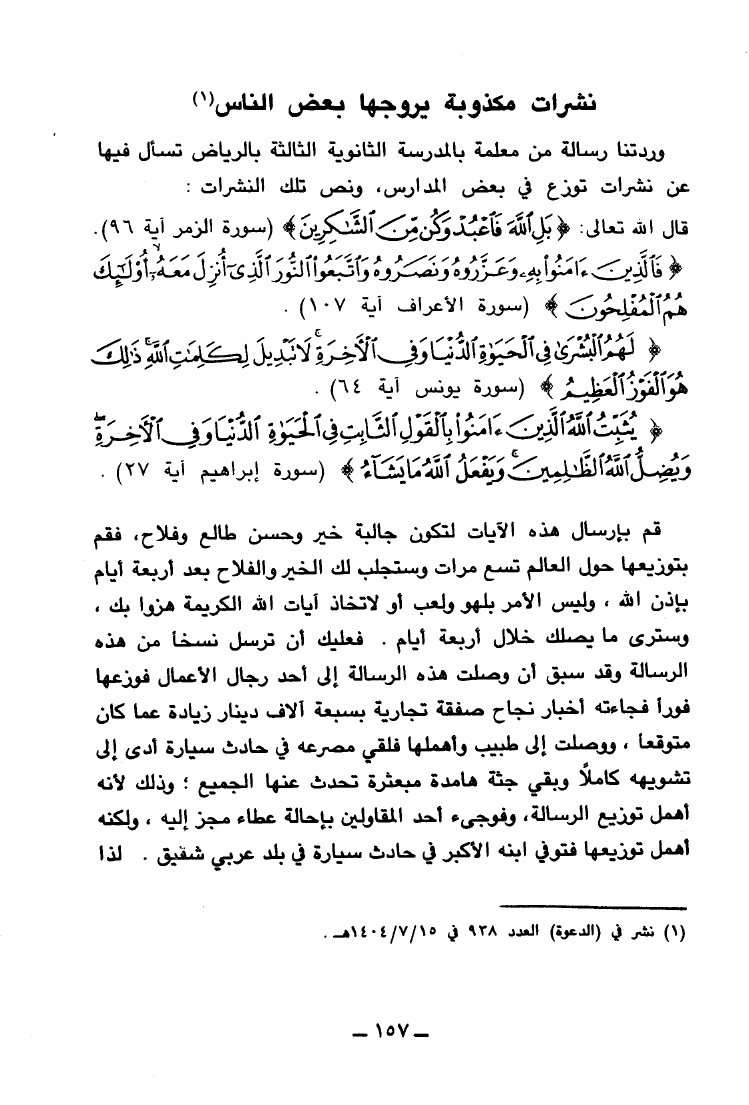 نشرات مكذوبة يروجها بعض الناس(١)
وردتنا رسالة من معلمة بالمدرسة الثانوية الثالثة بالرياض تسأل فيها
عن نشرات توزع في بعض المدارس، ونص تلك النشرات :
قال الله تعالى: ﴿ بَلِ ٱللَّهَ فَٱعْبُدْ وَكُن مِّنَ ٱلشَّٰكِرِينَ ﴾ (سورة الزمر آية ٩٦).
﴿ فَٱلَّذِينَ ءَامَنُوا۟ بِهِۦ وَعَزَّرُوهُ وَنَصَرُوهُ وَٱتَّبَعُوا۟ ٱلنُّورَ ٱلَّذِىٓ أُنزِلَ مَعَهُۥٓ أُو۟لَٰٓئِكَ
هُمُ ٱلْمُفْلِحُونَ ﴾ (سورة الأعراف آية ١٠٧) .
﴿ لَهُمُ ٱلْبُشْرَىٰ فِى ٱلْحَيَوٰةِ ٱلدُّنْيَا وَفِى ٱلْءَاخِرَةِ ۚ لَا تَبْدِيلَ لِكَلِمَٰتِ ٱللَّهِ ۚ ذَٰلِكَ
هُوَ ٱلْفَوْزُ ٱلْعَظِيمُ ﴾ (سورة يونس آية ٦٤) .
﴿ يُثَبِّتُ ٱللَّهُ ٱلَّذِينَ ءَامَنُوا۟ بِٱلْقَوْلِ ٱلثَّابِتِ فِى ٱلْحَيَوٰةِ ٱلدُّنْيَا وَفِى ٱلْءَاخِرَةِ ۖ
وَيُضِلُّ ٱللَّهُ ٱلظَّٰلِمِينَ ۚ وَيَفْعَلُ ٱللَّهُ مَا يَشَآءُ ﴾ (سورة إبراهيم آية ٢٧) .
قم بإرسال هذه الآيات لتكون جالبة خير وحسن طالع وفلاح، فقم
بتوزيعها حول العالم تسع مرات وستجلب لك الخير والفلاح بعد أربعة أيام
بإذن الله ، وليس الأمر بلهو ولعب أو لاتخاذ آيات الله الكريمة هزوا بك ،
وسترى ما يصلك خلال أربعة أيام . فعليك أن ترسل نسخاً من هذه
الرسالة وقد سبق أن وصلت هذه الرسالة إلى أحد رجال الأعمال فوزعها
فوراً فجاءته أخبار نجاح صفقة تجارية بسبعة آلاف دينار زيادة عما كان
متوقعاً ، ووصلت إلى طبيب وأهملها فلقي مصرعه في حادث سيارة أدى إلى
تشويهه كاملاً وبقي جثة هامدة مبعثرة تحدث عنها الجميع ؛ وذلك لأنه
أهمل توزيع الرسالة، وفوجىء أحد المقاولين بإحالة عطاء مجز إليه ، ولكنه
أهمل توزيعها فتوفي ابنه الأكبر في حادث سيارة في بلد عربي شقيق . لذا
(١) نشر في (الدعوة) العدد ٩٣٨ في ١٤٠٤/٧/١٥هـ .
ـ ١٥٧ ـ